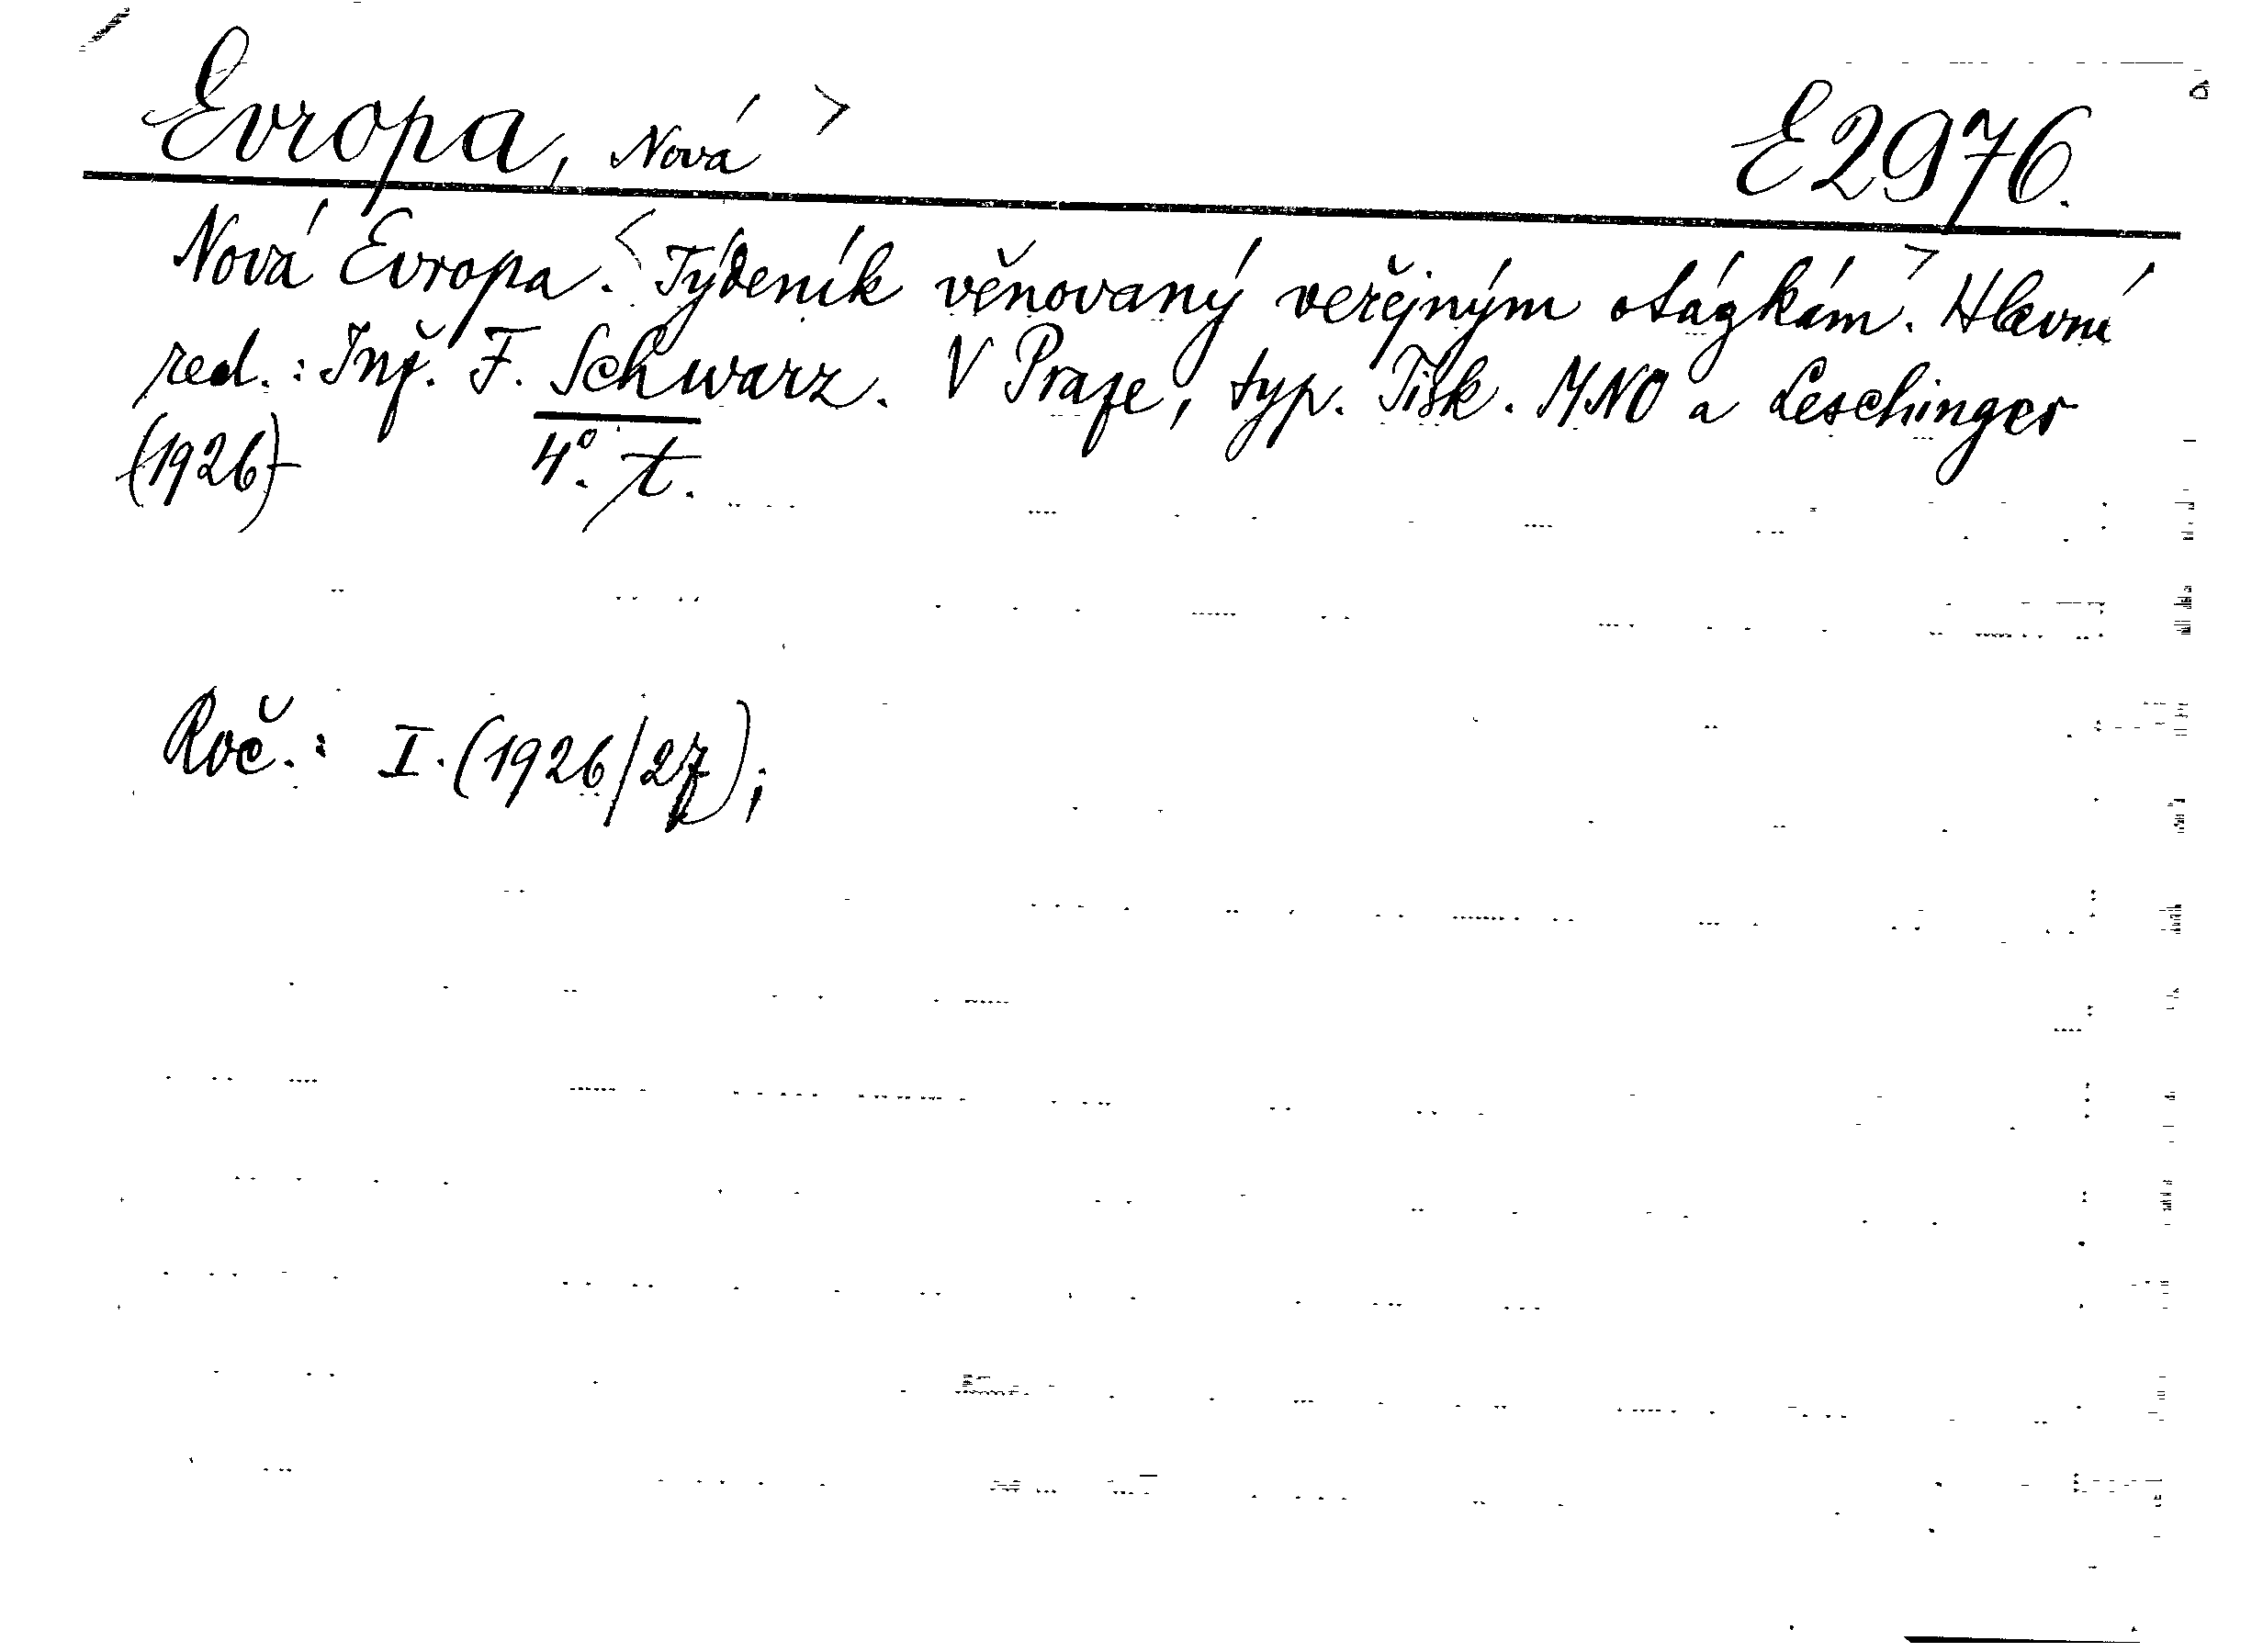 Evropa, Nová > E 2976.
Nová Evropa. < Týdeník věnovaný veřejným otázkám. > Hlavní
red.: Inž. F. Schwarz. V Praze, typ. Tisk. MNO a Leschinger
(1926)- 4°. t.
Roč.: I. (1926/27);